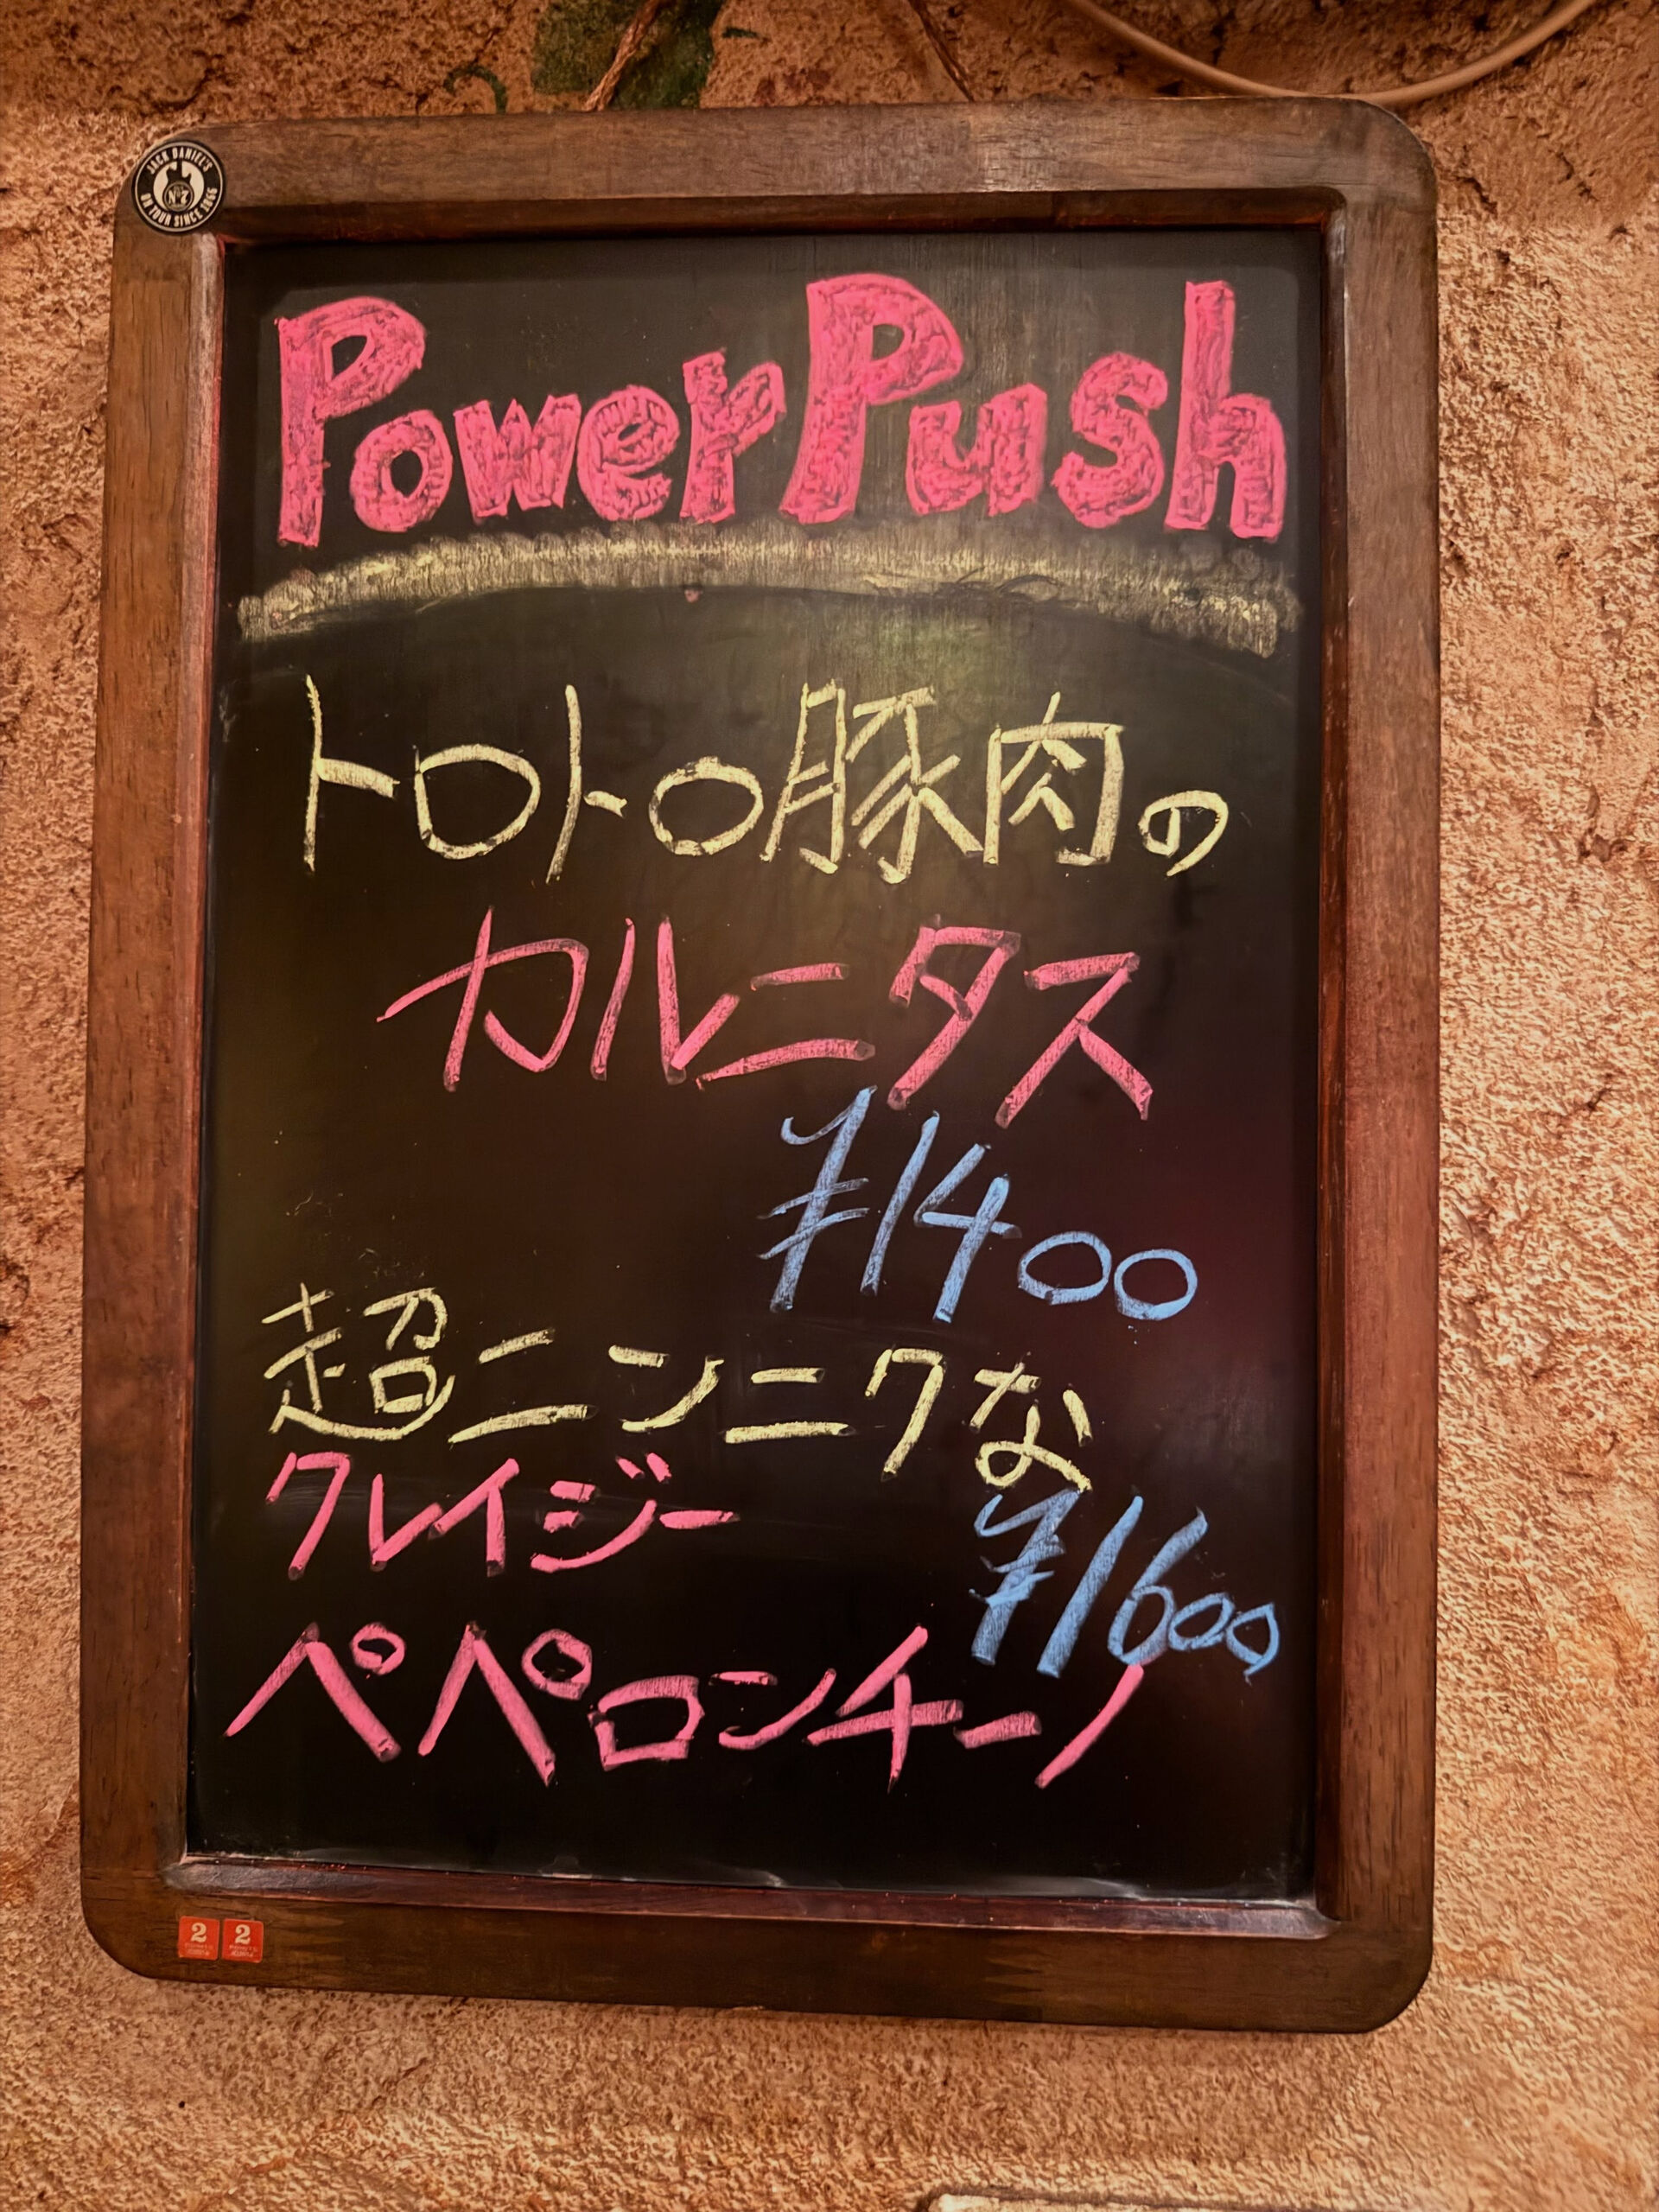 JACK DANIEL'S
Nº7
ON TOUR SINCE 1866
PowerPush
トロトロ豚肉の
カルニタス
¥1400
超ニンニクな
クレイジー
¥1600
ペペロンチーノ
2 2